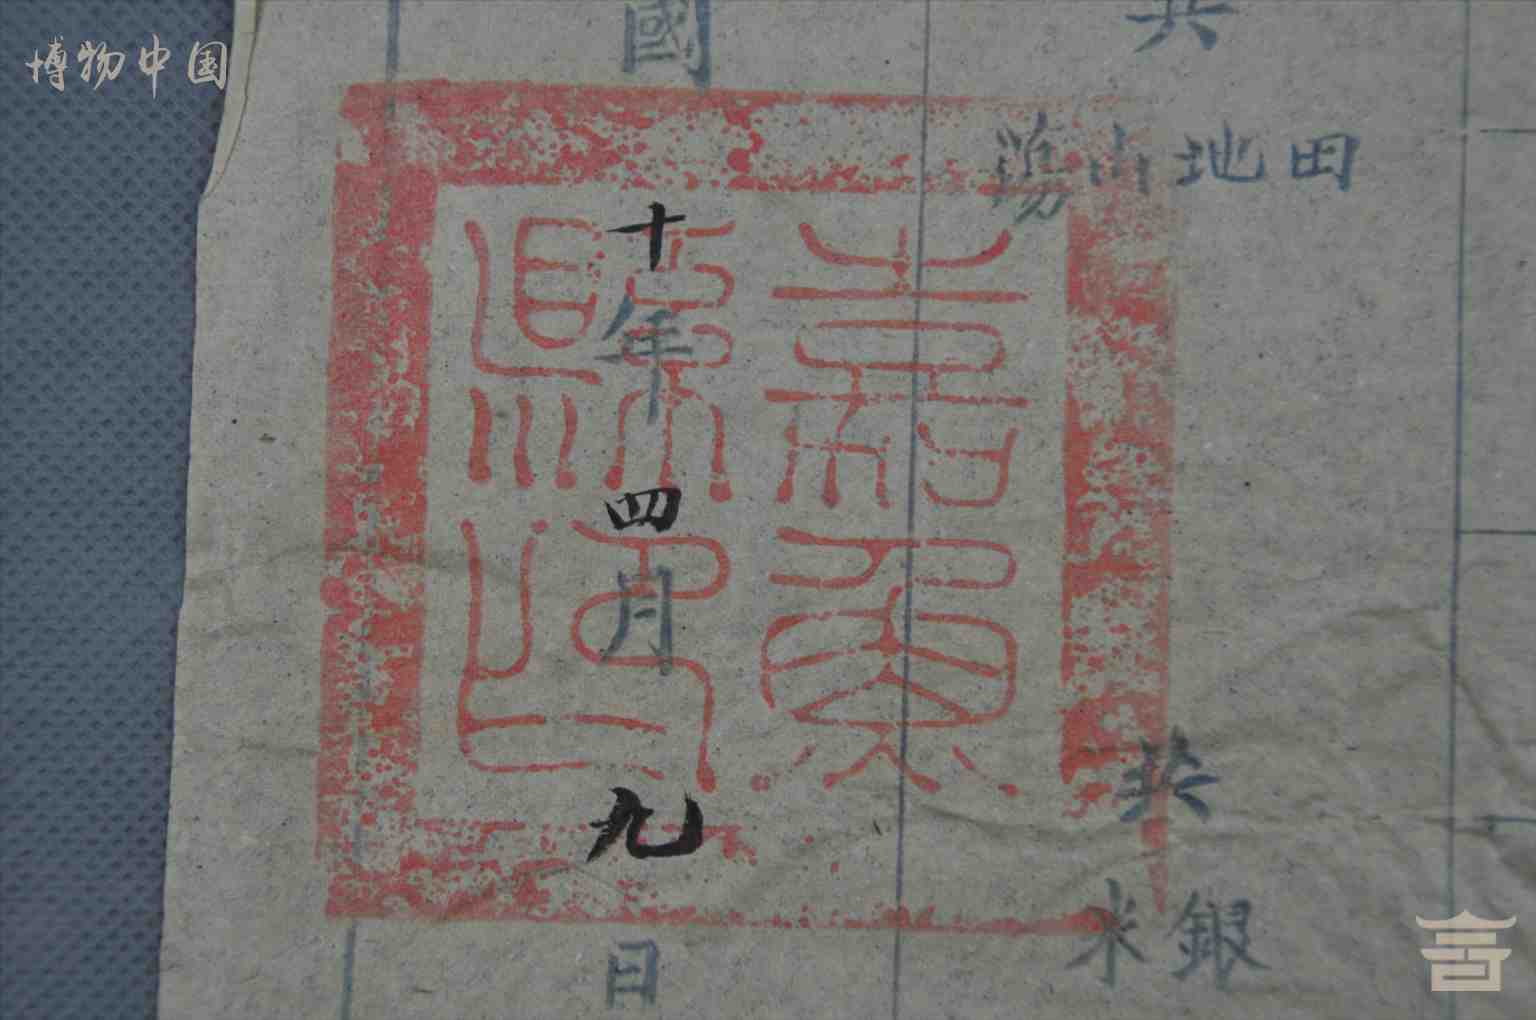 博物中国
共
田地山蕩
共
銀米
國十年四月九日
嘉魚
縣印